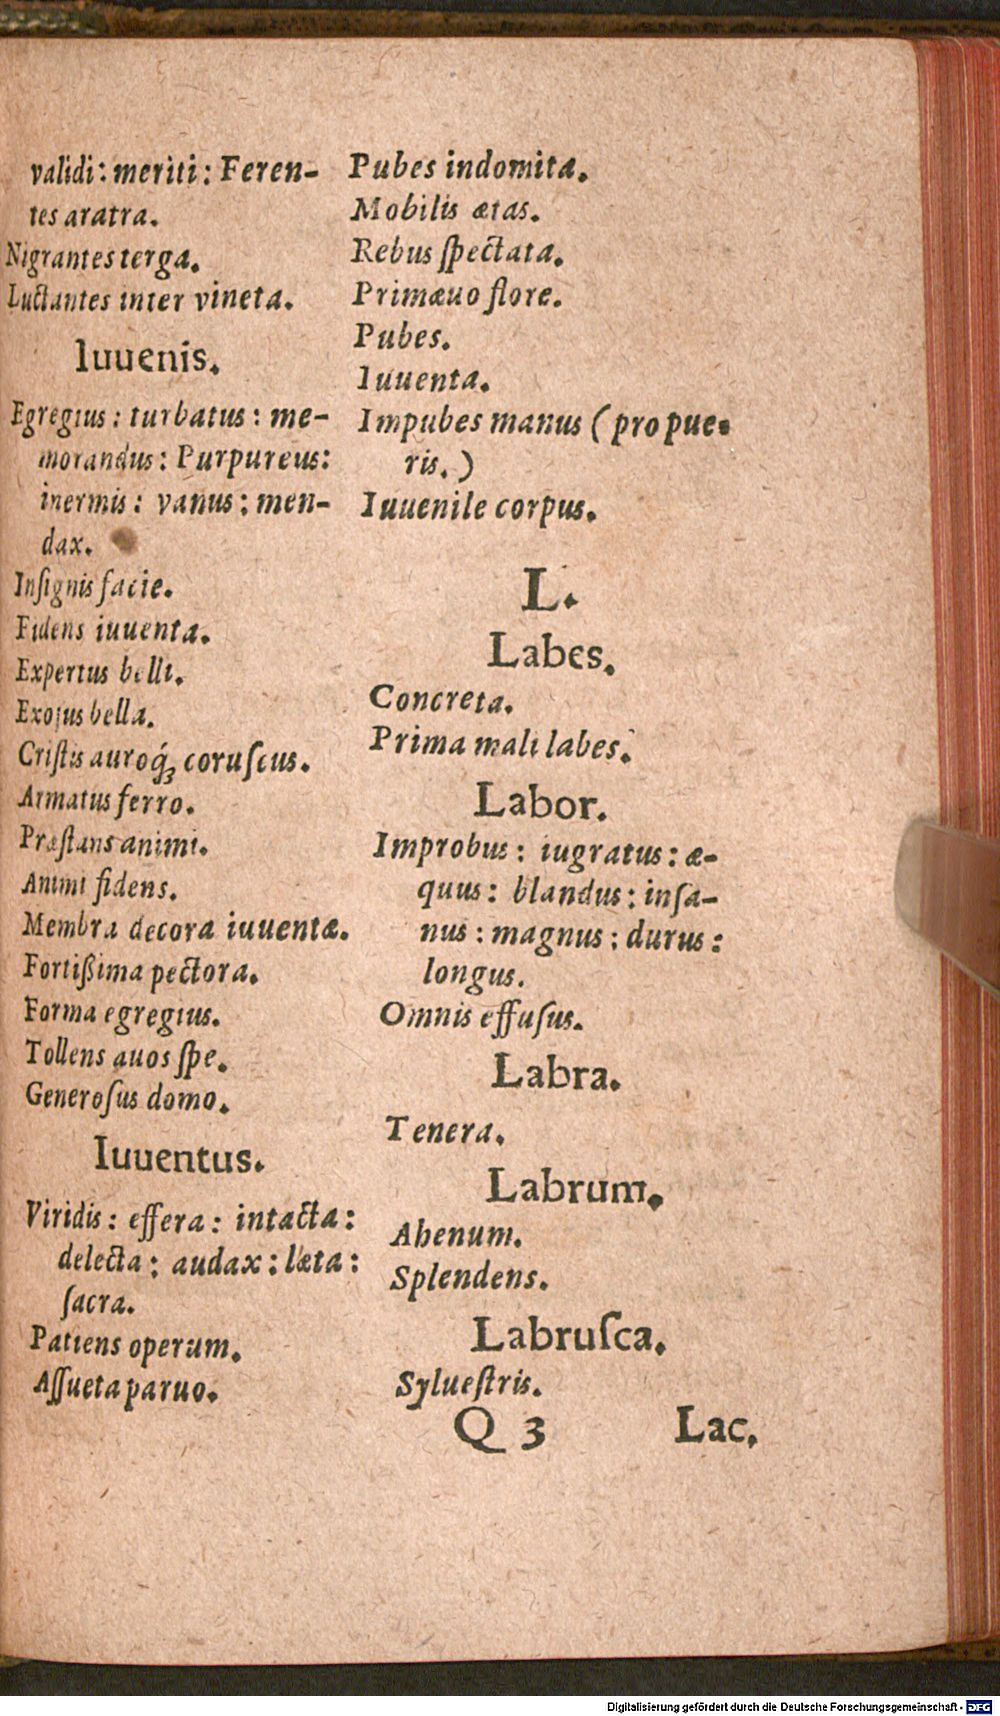 validi: meriti: Feren-
tes aratra.
Nigrantes terga.
Luctantes inter vineta.
Iuuenis.
Egregius: turbatus: me-
morandus: Purpureus:
inermis: vanus: men-
dax.
Inſignis facie.
Fidens iuuenta.
Expertus belli.
Exoſus bella.
Criſtis auroq́ꝫ coruſcus.
Armatus ferro.
Præſtans animi.
Animi fidens.
Membra decora iuuentæ.
Fortißima pectora.
Forma egregius.
Tollens auos ſpe.
Generoſus domo.
Iuuentus.
Viridis: effera: intacta:
delecta: audax: læta:
ſacra.
Patiens operum.
Aſſueta paruo.
Pubes indomita.
Mobilis ætas.
Rebus ſpectata.
Primæuo flore.
Pubes.
Iuuenta.
Impubes manus (pro pue-
ris.)
Iuuenile corpus.
L.
Labes.
Concreta.
Prima mali labes.
Labor.
Improbus: iugratus: æ-
quus: blandus: inſa-
nus: magnus: durus:
longus.
Omnis effuſus.
Labra.
Tenera.
Labrum.
Ahenum.
Splendens.
Labruſca.
Sylueſtris.
Q 3 Lac.
Digitalisierung gefördert durch die Deutsche Forschungsgemeinschaft - DFG